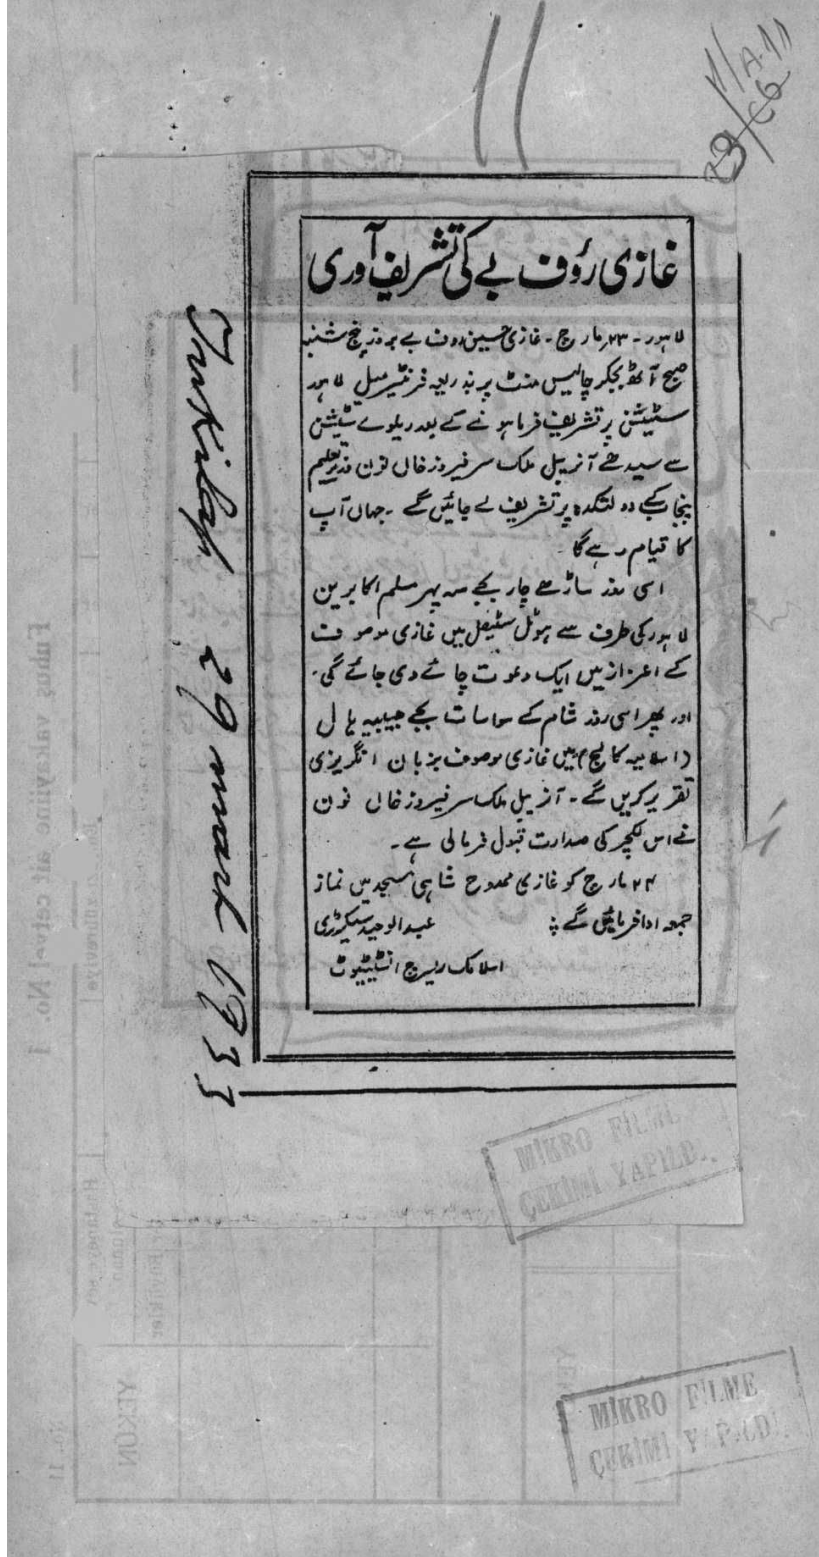 11
غازی رؤف بے کی تشریف آوری
لاہور۔ ۲۳؍ مارچ۔ غازی حسین رؤف بے بروز پنج شنبہ
صبح آٹھ بجکر چالیس منٹ پر بذریعہ فرنٹیر میل لاہور
سٹیشن پر تشریف فرما ہونے کے بعد ریلوے سٹیشن
سے سیدھے آنریبل ملک سر فیروز خاں نون وزیر تعلیم
پنجاب کے دولتکدہ پر تشریف لے جائیں گے۔ جہاں آپ
کا قیام رہے گا۔
اسی روز ساڑھے چار بجے سہ پہر مسلم اکابرین
لاہور کی طرف سے ہوٹل سٹیفل میں غازی موصوف
کے اعزاز میں ایک دعوت چائے دی جائے گی۔
اور پھر اسی روز شام کے سوا سات بجے حبیبیہ ہال
(اسلامیہ کالج) میں غازی موصوف بزبان انگریزی
تقریر کریں گے۔ آنریبل ملک سر فیروز خاں نون
نے اس لکچر کی صدارت قبول فرمالی ہے۔
۲۴ مارچ کو غازی ممدوح شاہی مسجد میں نماز
جمعہ ادا فرمائیں گے ؛ عبدالوحید سیکرٹری
اسلامک ریسرچ انسٹیٹیوٹ
Inkilap 29 mart 1933
MİKRO FİLME
ÇEKİMİ YAPILD
MİKRO FİLME
ÇEKİMİ YAPILDI
Fuhuş vakayiine ait cetvel No. 1
YEKÛN